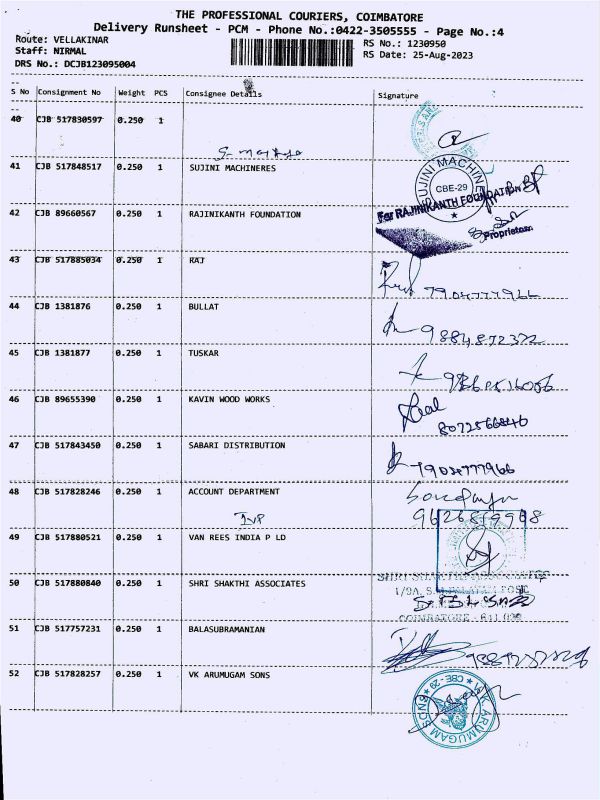 THE PROFESSIONAL COURIERS, COIMBATORE
Delivery Runsheet - PCM - Phone No.:0422-3505555 - Page No.:4
Route: VELLAKINAR RS No.: 1230950
Staff: NIRMAL RS Date: 25-Aug-2023
DRS No.: DCJB123095004
S No Consignment No Weight PCS Consignee Details Signature
40 CJB 517830597 0.250 1
41 CJB 517848517 0.250 1 SUJINI MACHINERES
CBE-29
42 CJB 89660567 0.250 1 RAJINIKANTH FOUNDATION
For RAJINIKANTH FOUNDATION
Proprietor
43 CJB 517885034 0.250 1 RAJ
7904777966
44 CJB 1381876 0.250 1 BULLAT
9884872372
45 CJB 1381877 0.250 1 TUSKAR
46 CJB 89655390 0.250 1 KAVIN WOOD WORKS
8072566846
47 CJB 517843450 0.250 1 SABARI DISTRIBUTION
7904777966
48 CJB 517828246 0.250 1 ACCOUNT DEPARTMENT
49 CJB 517880521 0.250 1 VAN REES INDIA P LD
50 CJB 517880840 0.250 1 SHRI SHAKTHI ASSOCIATES
SHRI SHAKTHI ASSOCIATES
COIMBATORE
51 CJB 517757231 0.250 1 BALASUBRAMANIAN
52 CJB 517828257 0.250 1 VK ARUMUGAM SONS
V.K. ARUMUGAM SONS
CBE - 29